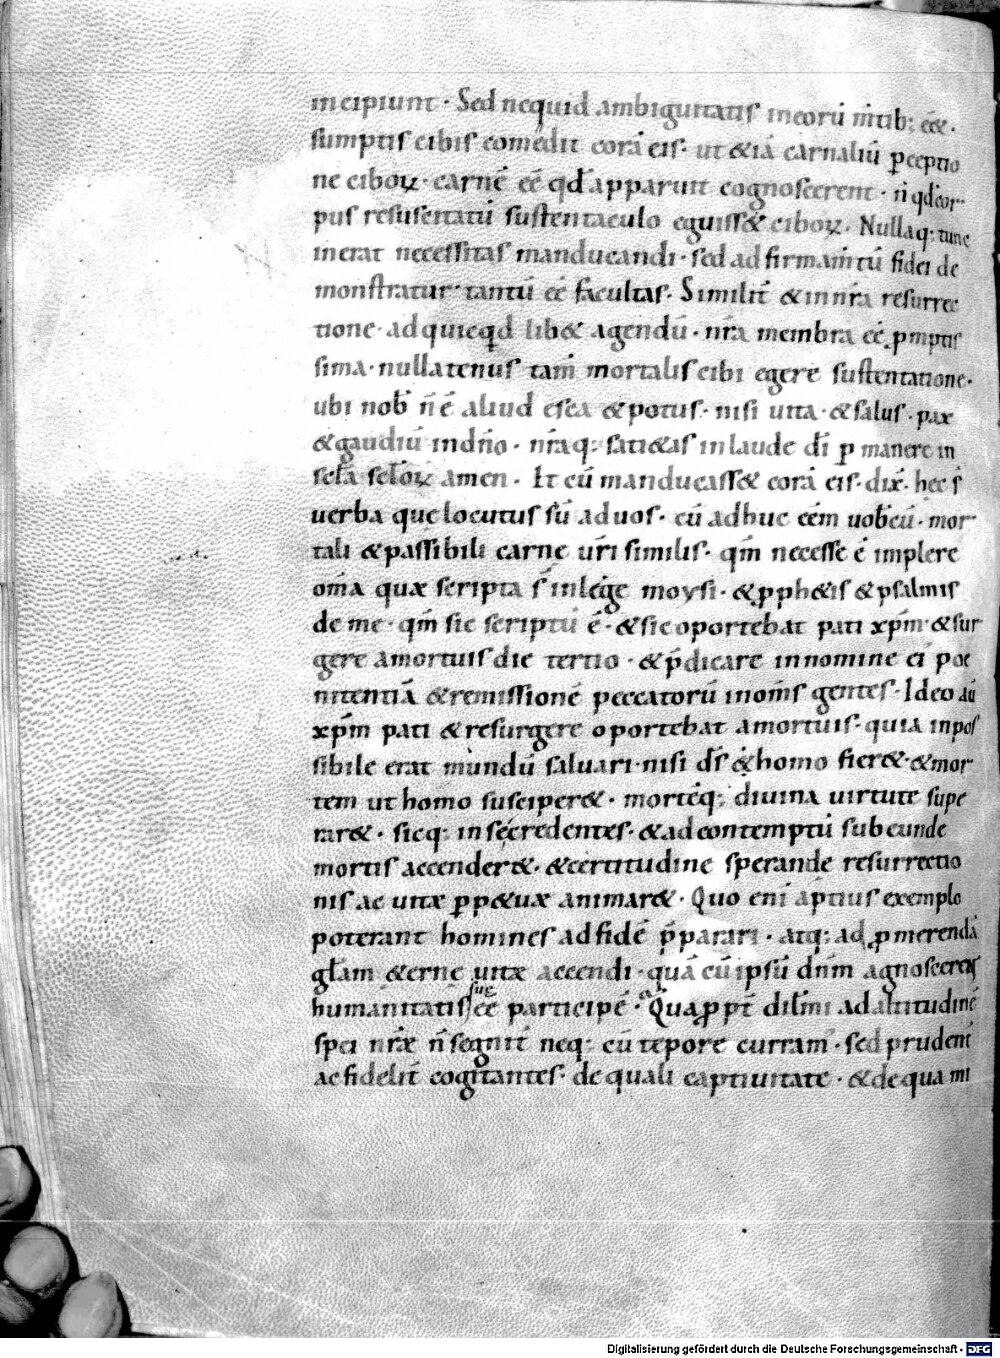 incipiunt · Sed nequid ambiguitatis ineorū m̄tib; ee&·
sumptis cibis comedit corā eis · ut &iā carnaliū p̱ceptio
ne ciboꝝ · carnē eē qđ apparuit cognoscerent · n̄ qđ cor
pus resuscitatū sustentaculo eguiss& ciboꝝ · Nullaq; tunc
inerat necessitas manducandi · sed ad firmam̄tū fidei de
monstratur tantū eē facultas · Similit̄ & in nr̄a resurrec
tione · ad quicqđ lib& agendū · nr̄a membra eē ꝓmptis
sima · nullatenus tam̄ mortalis cibi egere sustentatione ·
ubi nob̄ n̄ ē aliud esca & potus · nisi uita · & salus · pax
& gaudiū in dn̄o · nr̄aq; sati&as in laude dī ꝑmanere in
sc̄la sc̄loꝝ amen · Et cū manducass& corā eis · dix̄ · hec s̄
uerba que locutus sū ad uos · cū adhuc eēm uob̄cū · mor
tali & passibili carne ur̄i similis · qm̄ necesse ē implere
om̄a quæ scripta s̄ in lege moysi · & ꝓph&is & psalmis
de me · qm̄ sic scriptū ē · & sic oportebat pati xp̄m · & sur
gere a mortuis die tertio · & p̄dicare in nomine ei pœ
nitentiā & remissionē peccatorū in om̄s gentes · Ideo aū
xp̄m pati & resurgere oportebat a mortuis · quia inpos
sibile erat mundū saluari · nisi ds̄ & homo fier& · & mor
tem ut homo susciper& · mortēq; diuina uirtute supe
rar& · sicq; in se credentes · & ad contemptū subeunde
mortis accender& · & certitudine sperande resurrectio
nis ac uitæ ꝑp&uæ animar& · Quo eni aptius exemplo
poterant homines ad fidē p̄parari · atq; ad ꝓmerendā
gl̄am &erne uitæ accendi · quā cū ipsū dn̄m agnosceret
humanitatis suę eē participē · Quaꝓpt̄ dil̄mi ad altitudinē
spei nr̄æ n̄ segnit̄ neq; cū tepore curram · sed prudent̄
ac fidelit̄ cogitantes · de quali captiuitate · & de qua mi
Digitalisierung gefördert durch die Deutsche Forschungsgemeinschaft - DFG